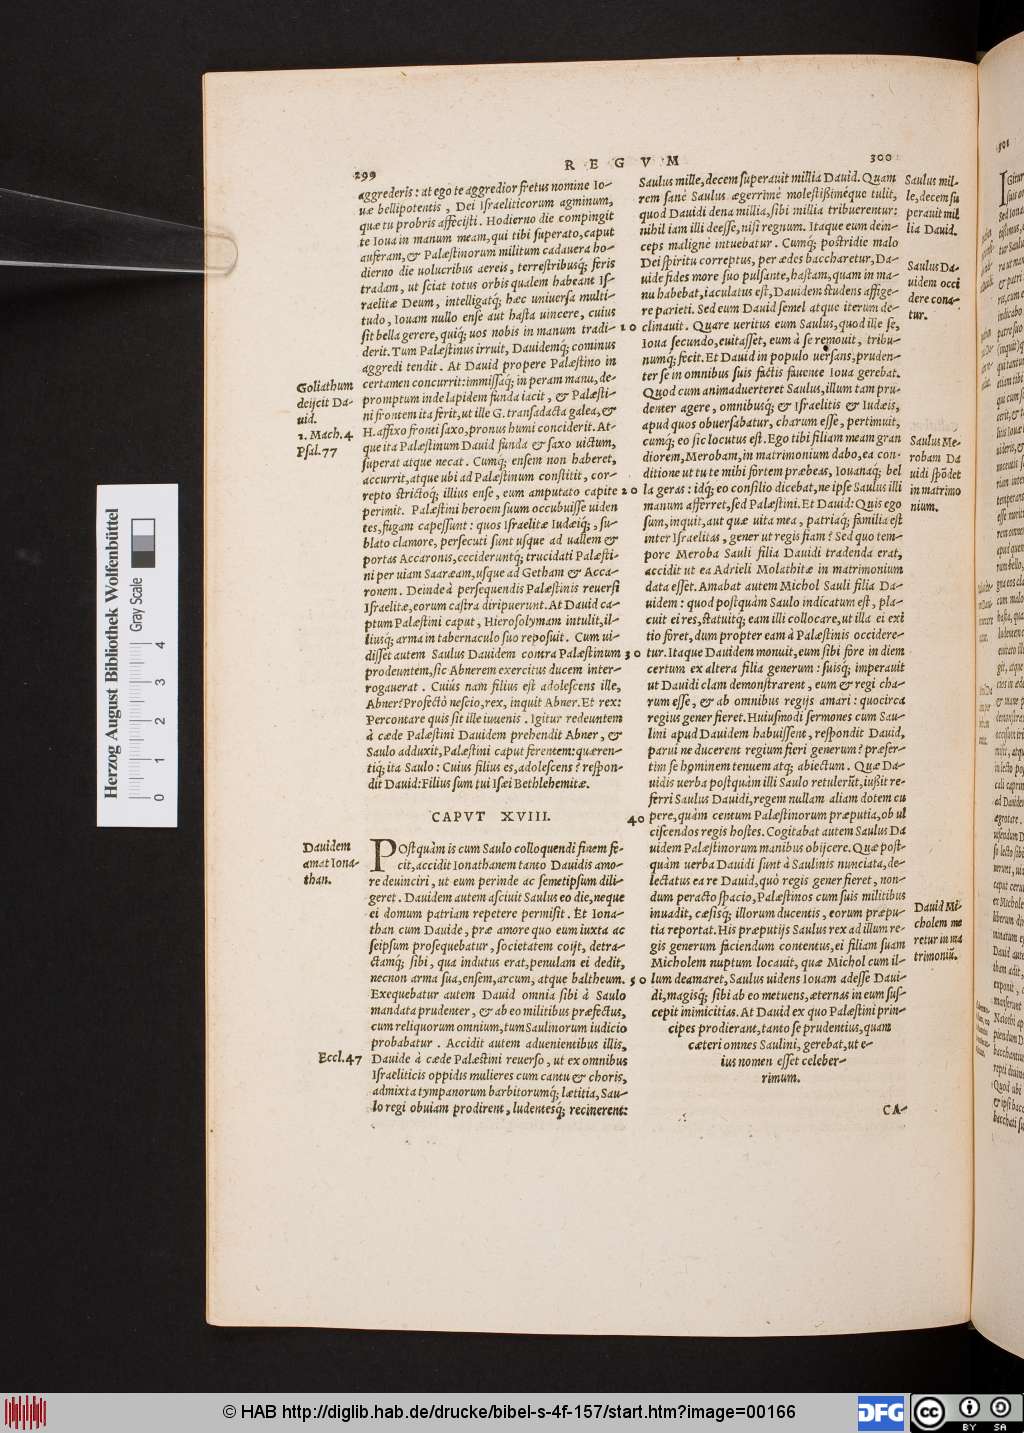 299
REGVM
300
aggrederis: at ego te aggredior fretus nomine Io-
uæ bellipotentis, Dei Israeliticorum agminum,
quæ tu probris affecisti. Hodierno die compingit
te Ioua in manum meam, qui tibi superato, caput
auferam, & Palæstinorum militum cadauera ho-
dierno die uolucribus aereis, terrestribusq; feris
tradam, ut sciat totus orbis qualem habeant Is-
raelitæ Deum, intelligatq; hæc uniuersa multi-
tudo, Iouam nullo ense aut hasta uincere, cuius
sit bella gerere, quiq; uos nobis in manum tradi-
derit. Tum Palæstinus irruit, Dauidemq; cominus
aggredi tendit. At Dauid propere Palæstino in
certamen concurrit: immissaq; in peram manu, de-
promptum inde lapidem funda iacit, & Palæsti-
ni frontem ita ferit, ut ille G. transadacta galea, &
H. affixo fronti saxo, pronus humi conciderit. At-
que ita Palæstinum Dauid funda & saxo uictum,
superat atque necat. Cumq; ensem non haberet,
accurrit, atque ubi ad Palæstinum constitit, cor-
repto strictoq; illius ense, eum amputato capite
perimit. Palæstini heroem suum occubuisse uiden
tes, fugam capessunt: quos Israelitæ Iudæiq;, su-
blato clamore, persecuti sunt usque ad uallem &
portas Accaronis, cecideruntq; trucidati Palæsti-
ni per uiam Saaræam, usque ad Getham & Acca-
ronem. Deinde à persequendis Palæstinis reuersi
Israelitæ, eorum castra diripuerunt. At Dauid ca-
ptum Palæstini caput, Hierosolymam intulit, il-
liusq; arma in tabernaculo suo reposuit. Cum ui-
disset autem Saulus Dauidem contra Palæstinum
prodeuntem, sic Abnerem exercitus ducem inter-
rogauerat. Cuius nam filius est adolescens ille,
Abner? Profectò nescio, rex, inquit Abner. Et rex:
Percontare quis sit ille iuuenis. Igitur redeuntem
à cæde Palæstini Dauidem prehendit Abner, &
Saulo adduxit, Palæstini caput ferentem: quæren-
tiq; ita Saulo: Cuius filius es, adolescens? respon-
dit Dauid: Filius sum tui Isæi Bethlehemitæ.
Goliathum
deijcit Da-
uid.
1. Mach. 4
Psal. 77
CAPVT XVIII.
POstquàm is cum Saulo colloquendi finem fe-
cit, accidit Ionathanem tanto Dauidis amo-
re deuinciri, ut eum perinde ac semetipsum dili-
geret. Dauidem autem asciuit Saulus eo die, neque
ei domum patriam repetere permisit. Et Iona-
than cum Dauide, præ amore quo eum iuxta ac
seipsum prosequebatur, societatem coijt, detra-
ctamq; sibi, qua indutus erat, penulam ei dedit,
necnon arma sua, ensem, arcum, atque baltheum.
Exequebatur autem Dauid omnia sibi à Saulo
mandata prudenter, & ab eo militibus præfectus,
cum reliquorum omnium, tum Saulinorum iudicio
probabatur. Accidit autem aduenientibus illis,
Dauide à cæde Palæstini reuerso, ut ex omnibus
Israeliticis oppidis mulieres cum cantu & choris,
admixta tympanorum barbitorumq; lætitia, Sau-
lo regi obuiam prodirent, ludentesq; recinerent:
Dauidem
amat Iona-
than.
Eccl. 47
10
20
30
40
50
Saulus mille, decem superauit millia Dauid. Quam
rem sanè Saulus ægerrimè molestißiméque tulit,
quod Dauidi dena millia, sibi millia tribuerentur:
nihil iam illi deesse, nisi regnum. Itaque eum dein-
ceps malignè intuebatur. Cumq; postridie malo
Dei spiritu correptus, per ædes baccharetur, Da-
uide fides more suo pulsante, hastam, quam in ma-
nu habebat, iaculatus est, Dauidem studens affige-
re parieti. Sed eum Dauid semel atque iterum de-
clinauit. Quare ueritus eum Saulus, quod ille se,
Ioua secundo, euitasset, eum à se remouit, tribu-
numq; fecit. Et Dauid in populo uersans, pruden-
ter se in omnibus suis factis fauente Ioua gerebat.
Quod cum animaduerteret Saulus, illum tam pru-
denter agere, omnibusq; & Israelitis & Iudæis,
apud quos obuersabatur, charum esse, pertimuit,
cumq; eo sic locutus est. Ego tibi filiam meam gran
diorem, Merobam, in matrimonium dabo, ea con-
ditione ut tu te mihi fortem præbeas, Iouanaq; bel
la geras: idq; eo consilio dicebat, ne ipse Saulus illi
manum afferret, sed Palæstini. Et Dauid: Quis ego
sum, inquit, aut quæ uita mea, patriaq; familia est
inter Israelitas, gener ut regis fiam? Sed quo tem-
pore Meroba Sauli filia Dauidi tradenda erat,
accidit ut ea Adrieli Molathitæ in matrimonium
data esset. Amabat autem Michol Sauli filia Da-
uidem: quod postquàm Saulo indicatum est, pla-
cuit ei res, statuitq; eam illi collocare, ut illa ei exi
tio foret, dum propter eam à Palæstinis occidere-
tur. Itaque Dauidem monuit, eum sibi fore in diem
certum ex altera filia generum: suisq; imperauit
ut Dauidi clam demonstrarent, eum & regi cha-
rum esse, & ab omnibus regijs amari: quocirca
regius gener fieret. Huiusmodi sermones cum Sau-
lini apud Dauidem habuissent, respondit Dauid,
parui ne ducerent regium fieri generum? præser-
tim se hominem tenuem atq; abiectum. Quæ Da-
uidis uerba postquàm illi Saulo retulerūt, iußit re-
ferri Saulus Dauidi, regem nullam aliam dotem cu
pere, quàm centum Palæstinorum præputia, ob ul
ciscendos regis hostes. Cogitabat autem Saulus Da
uidem Palæstinorum manibus obijcere. Quæ post-
quàm uerba Dauidi sunt à Saulinis nunciata, de-
lectatus ea re Dauid, quò regis gener fieret, non-
dum peracto spacio, Palæstinos cum suis militibus
inuadit, cæsisq; illorum ducentis, eorum præpu-
tia reportat. His præputijs Saulus rex ad illum re-
gis generum faciendum contentus, ei filiam suam
Micholem nuptum locauit, quæ Michol cum il-
lum deamaret, Saulus uidens Iouam adesse Daui-
di, magisq; sibi ab eo metuens, æternas in eum sus-
cepit inimicitias. At Dauid ex quo Palæstini prin-
cipes prodierant, tanto se prudentius, quam
cæteri omnes Saulini, gerebat, ut e-
ius nomen esset celeber-
rimum.
CA-
Saulus mil-
le, decem su
perauit mil
lia Dauid.
Saulus Da-
uidem occi
dere cona-
tur.
Saulus Me-
robam Da
uidi spōdet
in matrimo
nium.
Dauid Mi-
cholem me
retur in ma
trimoniū.
301
Herzog August Bibliothek Wolfenbüttel
Gray Scale
0 1 2 3 4
© HAB http://diglib.hab.de/drucke/bibel-s-4f-157/start.htm?image=00166
DFG
cc
BY SA